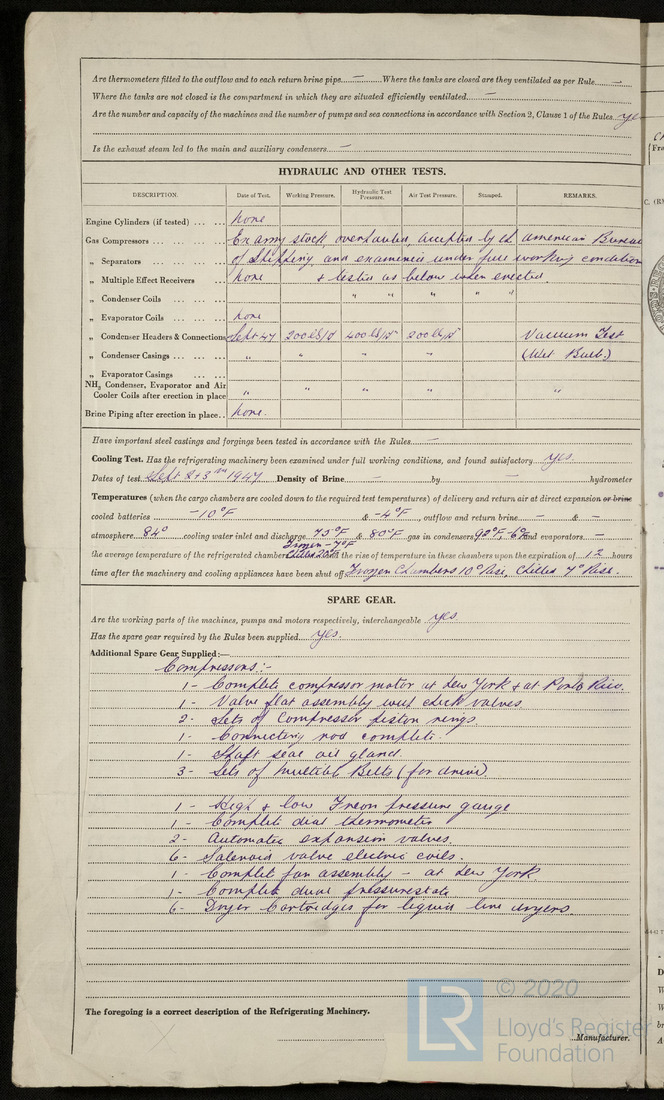 Are thermometers fitted to the outflow and to each return brine pipe — Where the tanks are closed are they ventilated as per Rule —
Where the tanks are not closed is the compartment in which they are situated efficiently ventilated —
Are the number and capacity of the machines and the number of pumps and sea connections in accordance with Section 2, Clause 1 of the Rules yes
Is the exhaust steam led to the main and auxiliary condensers —
HYDRAULIC AND OTHER TESTS.
DESCRIPTION. Date of Test. Working Pressure. Hydraulic Test Pressure. Air Test Pressure. Stamped. REMARKS.
Engine Cylinders (if tested) none
Gas Compressors Ex army stock overhauled, accepted by the American Bureau
„ Separators of Shipping and examined under full working condition
„ Multiple Effect Receivers none & tested as below when erected.
„ Condenser Coils " " " " "
„ Evaporator Coils none
„ Condenser Headers & Connections Sept 47 200 lb/□" 400 lb/□" 200 lb/□" Vacuum Test
„ Condenser Casings " " " " (Wet Bulb)
„ Evaporator Casings
NH3 Condenser, Evaporator and Air Cooler Coils after erection in place " " " " "
Brine Piping after erection in place none.
Have important steel castings and forgings been tested in accordance with the Rules —
Cooling Test. Has the refrigerating machinery been examined under full working conditions, and found satisfactory yes.
Dates of test Sept 2 & 3rd 1947 Density of Brine — by — hydrometer
Temperatures (when the cargo chambers are cooled down to the required test temperatures) of delivery and return air at direct expansion or brine
cooled batteries -10°F & -4°F, outflow and return brine — & —
atmosphere 84° cooling water inlet and discharge 75°F & 80°F gas in condensers 98°F, and evaporators —
Frozen -7°F
the average temperature of the refrigerated chambers Chilled 20°F the rise of temperature in these chambers upon the expiration of 12 hours
time after the machinery and cooling appliances have been shut off Frozen Chambers 10° Rise, Chilled 7° Rise.
SPARE GEAR.
Are the working parts of the machines, pumps and motors respectively, interchangeable yes.
Has the spare gear required by the Rules been supplied yes.
Additional Spare Gear Supplied:—
Compressors:-
1- Complete compressor motor at New York & at Porto Rico.
1- Valve plat assembly with check valves
2- Sets of Compressor piston rings.
1- Connecting rod complete.
1- Shaft seal oil gland.
3- Sets of Multible Belts (for drive)
1- High & low Freon pressure gauge
1- Complete dial thermometer
2- Automatic expansion valves.
6- Salenoid valve electric coils.
1- Complet fan assembly - at New York.
1- Complet dual pressurestate
6- Dryer Cartridges for liquid line dryers.
The foregoing is a correct description of the Refrigerating Machinery.
Manufacturer.
LR © 2020
Lloyd's Register
Foundation